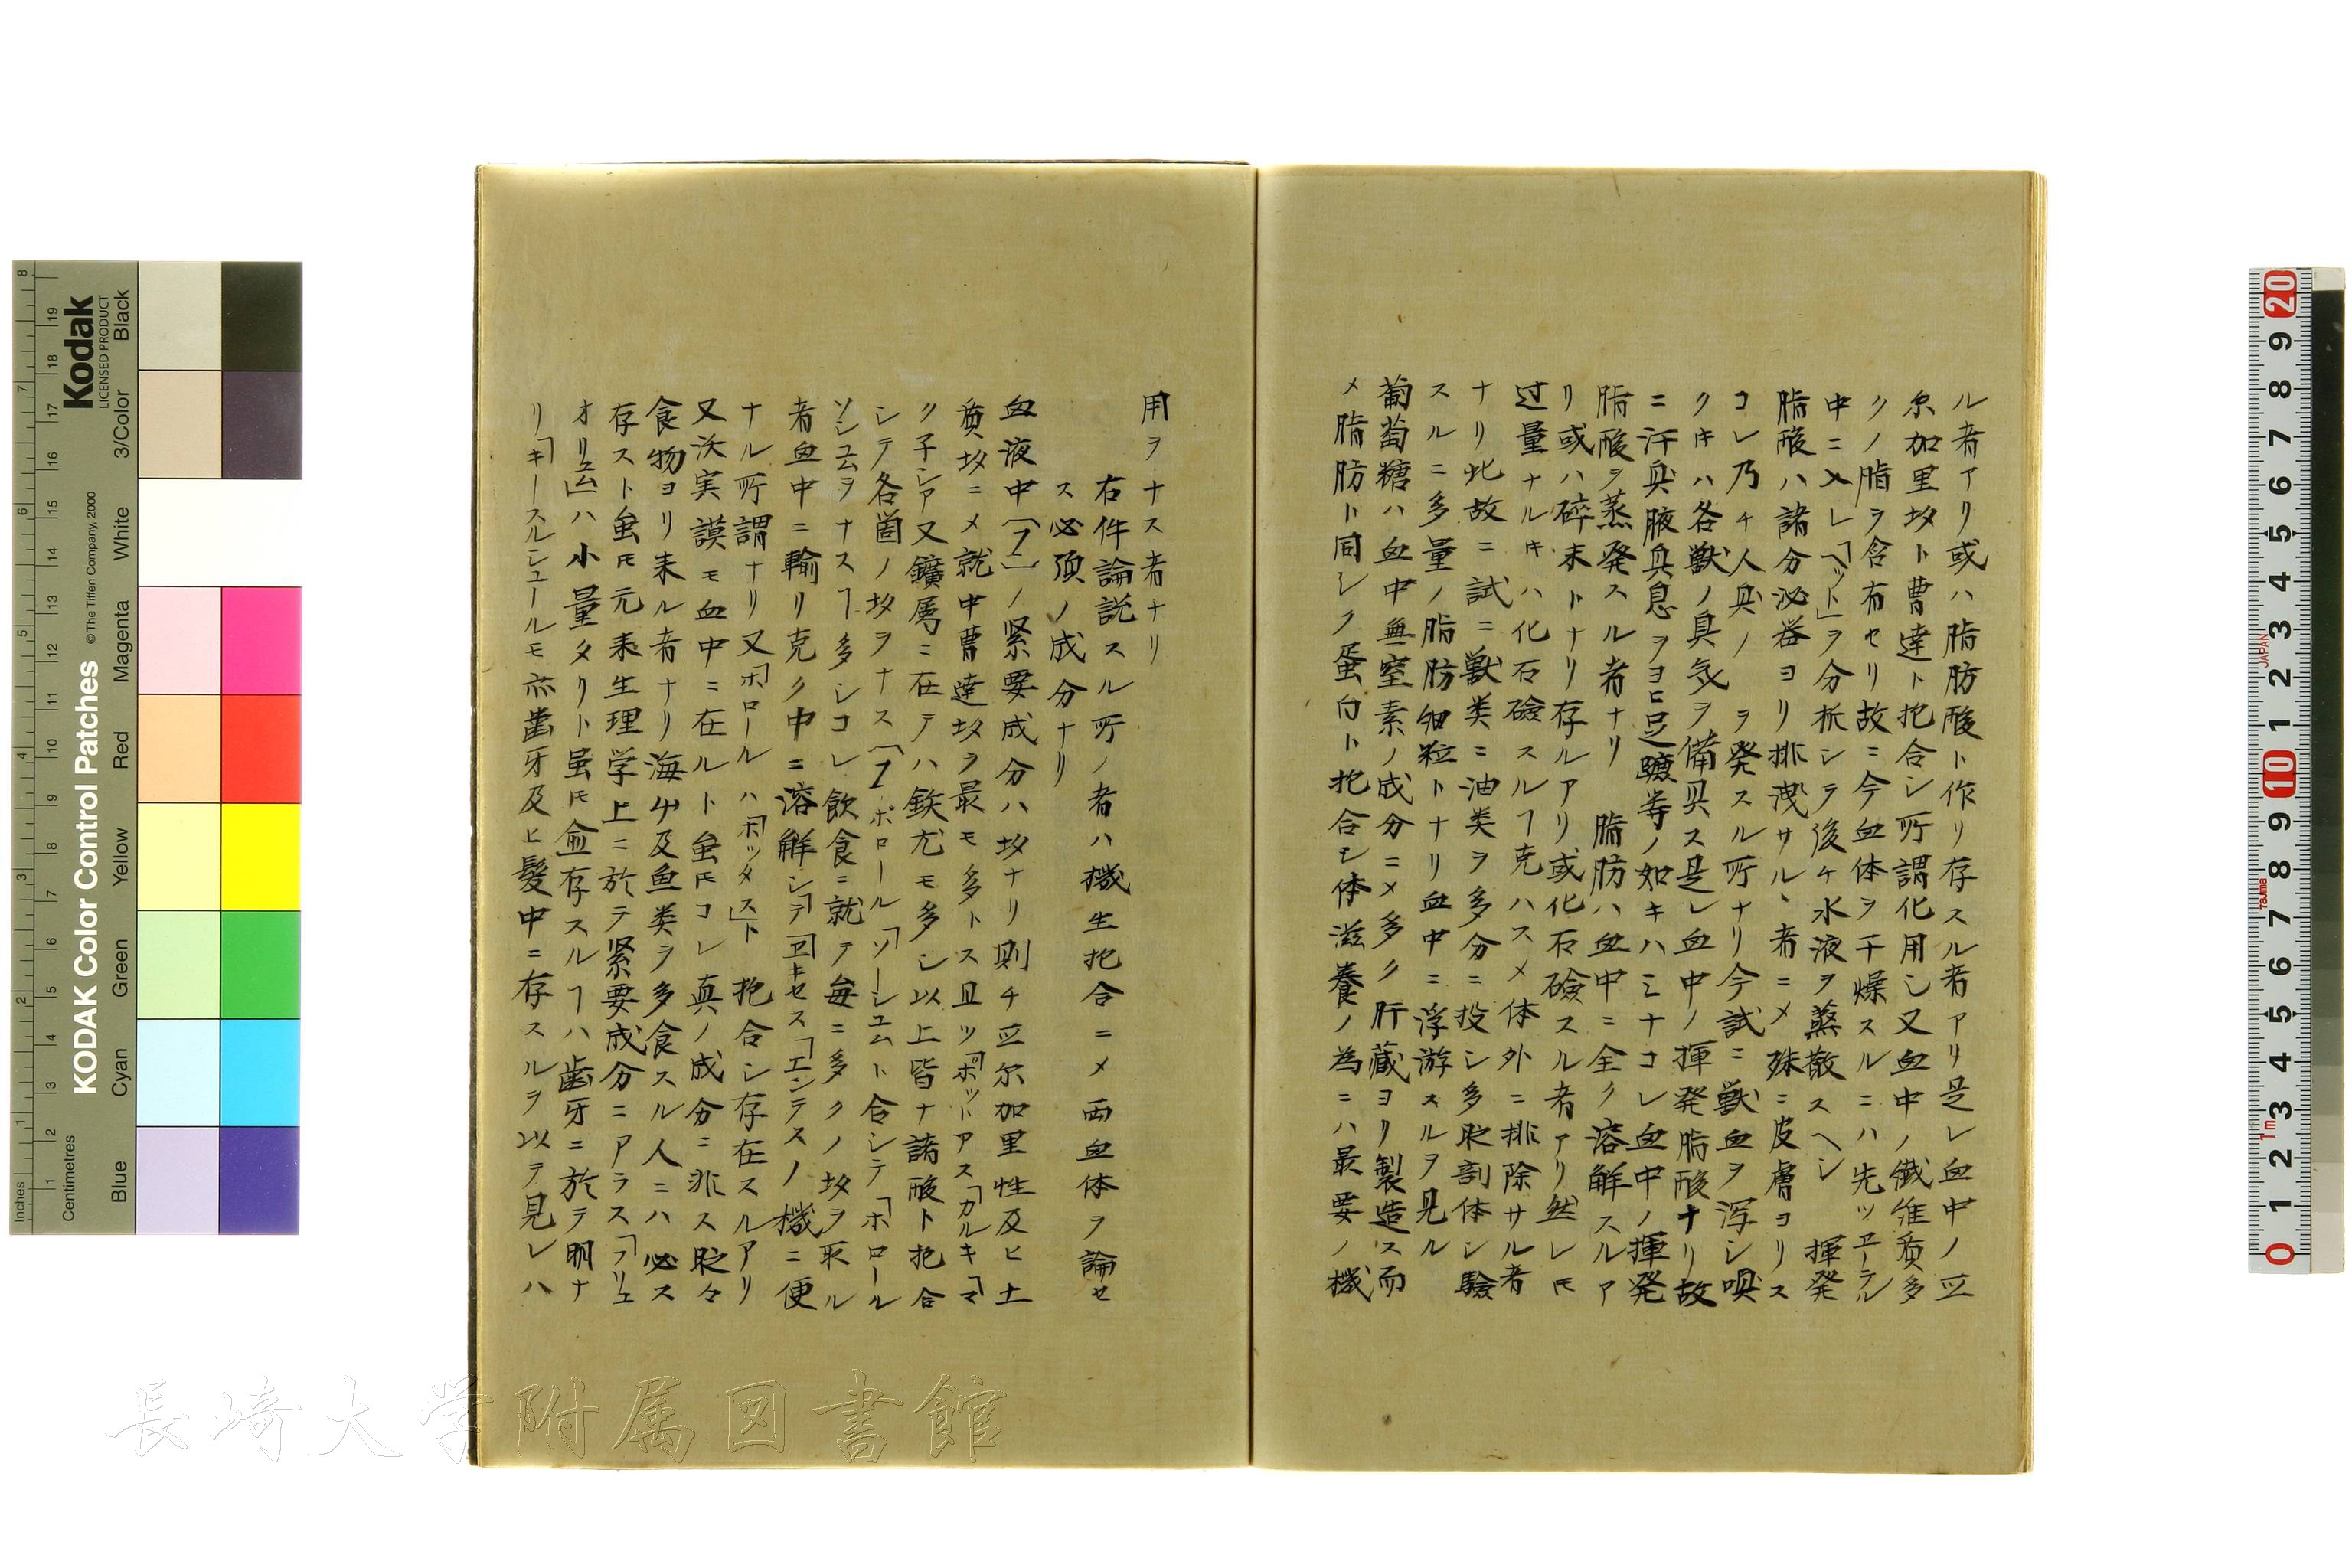 ル者アリ或ハ脂肪酸ト作リ存スル者アリ是レ血中ノ亞
尓加里塩ト曹達ト抱合シ所謂化用シ又血中ノ繊維質多
クノ脂ヲ含有セリ故ニ今血体ヲ干燥スルニハ先ッヱーテル
中ニ入レ「ヘット」ヲ分析シラ後ケ水液ヲ蒸散スヘシ 揮発
脂酸ハ諸分泌器ヨリ排洩サルヽ者ニメ殊ニ皮膚ヨリス
コレ乃チ人臭ノ ヲ発スル所ナリ今試ニ獣血ヲ瀉シ嗅
クキハ各獣ノ臭気ヲ備具ス是レ血中ノ揮発脂酸ナリ故
ニ汗臭腋臭息ヲヨヒ足 等ノ如キハミナコレ血中ノ揮発
脂酸ヲ蒸発スル者ナリ 脂肪ハ血中ニ全ク溶解スルア
リ或ハ碎末トナリ存ルアリ或化石礆スル者アリ然レ𪜈
过量ナルキハ化石礆スルヿ克ハスメ体外ニ排除サル者
ナリ此故ニ試ニ獣类ニ油类ヲ多分ニ投シ多时剖体シ驗
スルニ多量ノ脂肪細粒トナリ血中ニ浮游スルヲ見ル
葡萄糖ハ血中無窒素ノ成分ニメ多ク肝蔵ヨリ製造ス而
メ脂肪ト同シク蛋白ト抱合シ体滋養ノ為ニハ最要ノ機
用ヲナス者ナリ
右件論説スル所ノ者ハ機生抱合ニメ両血体ヲ論セ
ス必須ノ成分ナリ
血液中「1」ノ緊要成分ハ塩ナリ則チ亞尓加里性及ヒ土
質塩ニメ就中曹達塩ヲ最モ多トス且ツ「ポットアス「カルキ「マ
ク子シア又鑛属ニ在テハ鉄尤モ多シ以上皆ナ諸酸ト抱合
シテ各箇ノ塩ヲナス「1ボロール「ソーシユムト合シテ「ホロール
ソシユムヲナスヿ多シコレ飲食ニ就テ毎ニ多クノ塩ヲ取ル
者血中ニ輸リ克ク中ニ溶解シテ「ヱキセス「エンテスノ機ニ便
ナル所謂ナリ又「ホロールハ「ホッタス」ト 抱合シ存在スルアリ
又沃実謨モ血中ニ在ルト虽𪜈コレ真ノ成分ニ非ス时々
食物ヨリ来ル者ナリ海 及魚类ヲ多食スル人ニハ必ス
存スト虽𪜈元来生理学上ニ於テ緊要成分ニアラス「フリユ
オリユム」ハ小量タリト虽𪜈愈存スルヿハ歯牙ニ於テ明ナ
リ「キースルシユールモ亦歯牙及ヒ髪中ニ存スルヲ以テ見レハ
Kodak
LICENSED PRODUCT
KODAK Color Control Patches
© The Tiffen Company, 2000
Inches
Centimetres
Blue Cyan Green Yellow Red Magenta White 3/Color Black
JAPAN
Tajima
長崎大学附属図書館